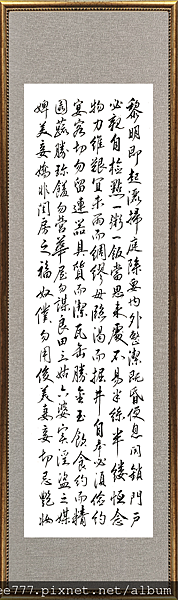 黎明即起灑掃庭除要內外整潔既昏便息關鎖門戶
必親自檢點一粥一飯當思來處不易半絲半縷恒念
物力維艱宜未雨而綢繆毋臨渴而掘井自奉必須儉約
宴客切勿留連器具質而潔瓦缶勝金玉飲食約而精
園蔬勝珍饈勿營華屋勿謀良田三姑六婆實淫盜之媒
婢美妾嬌非閨房之福奴僕勿用俊美妻妾切忌艷妝
ee777.pixnet.net/album